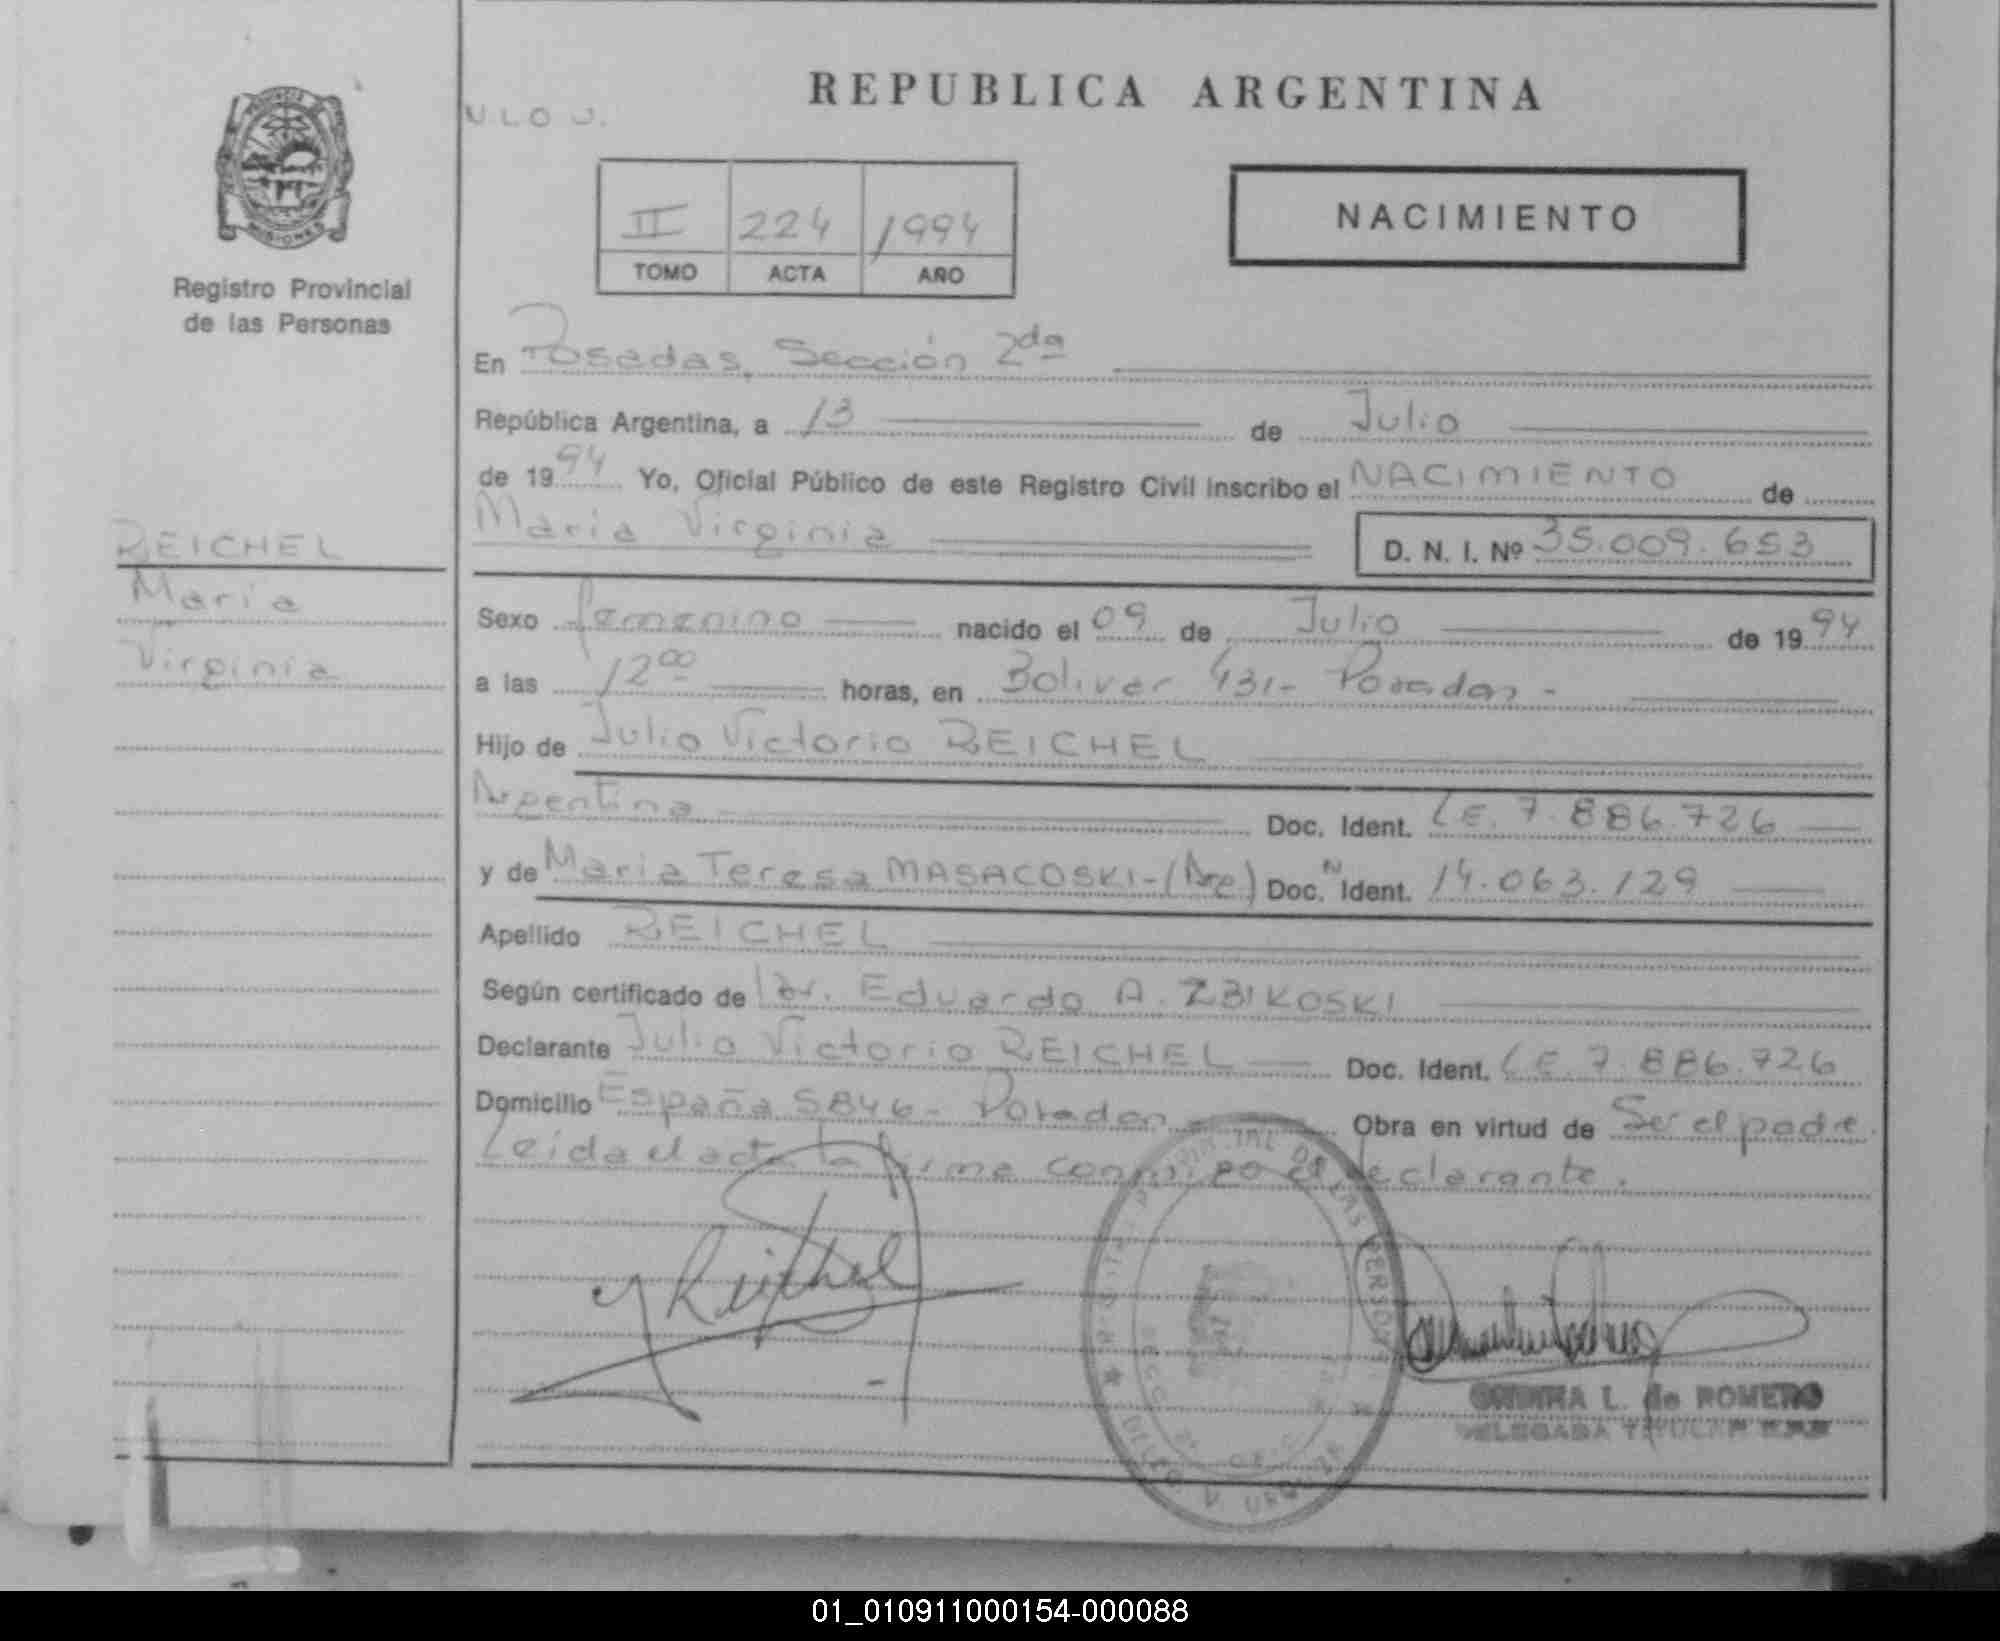 REPUBLICA ARGENTINA
PROVINCIA DE
MISIONES
Registro Provincial
de las Personas
II 224 1994
TOMO ACTA AÑO
NACIMIENTO
En Posadas, Sección 2da
República Argentina, a 13 de Julio
de 1994 Yo, Oficial Público de este Registro Civil inscribo el NACIMIENTO de
Maria Virginia D. N. I. Nº 35.009.653
REICHEL
Maria
Virginia
Sexo femenino nacido el 09 de Julio de 1994
a las 12 00 horas, en Bolivar 431- Posadas -
Hijo de Julio Victorio REICHEL
Argentina Doc. Ident. LE. 7.886.726
y de Maria Teresa MASACOSKI-(Arg) Doc. Ident. 14.063.129
Apellido REICHEL
Según certificado de Dr. Eduardo A. ZBIKOSKI
Declarante Julio Victorio REICHEL Doc. Ident. LE. 7.886.726
Domicilio España 5846- Posadas Obra en virtud de Ser el padre.
Leida el acta la firma conmigo el declarante.
Reichel
DE LAS PERSONAS
L. de ROMERO
DELEGADA TITULAR
01_010911000154-000088